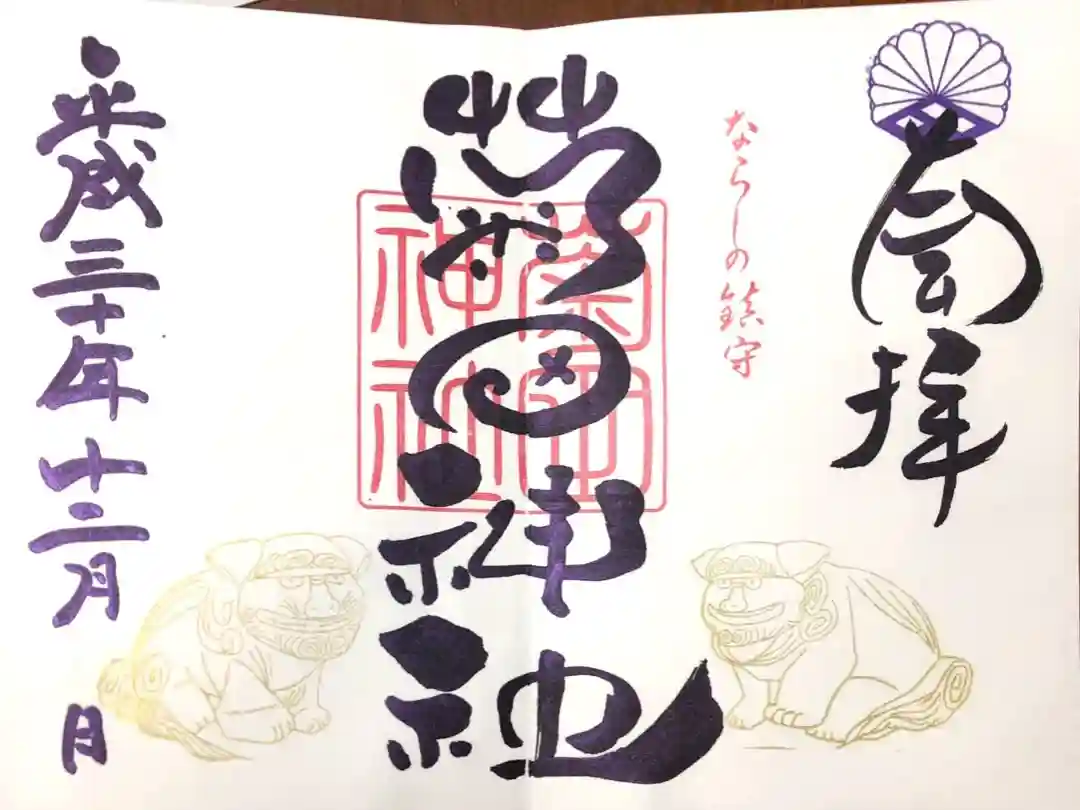 拝
ならしの鎮守
菊田神社
菊田
神社
平成三十年十二月 日